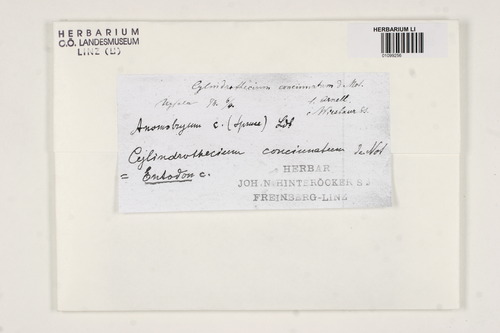 HERBARIUM
O.Ö. LANDESMUSEUM
LINZ (B)
HERBARIUM LI
01099256
Cylindrothecium concinnatum d. Not.
Anomobryum c. (Spruce) Ldb
Cylindrothecium concinnatum De Not
= Entodon c.
HERBAR
JOH. N. HINTERÖCKER S J
FREINBERG-LINZ